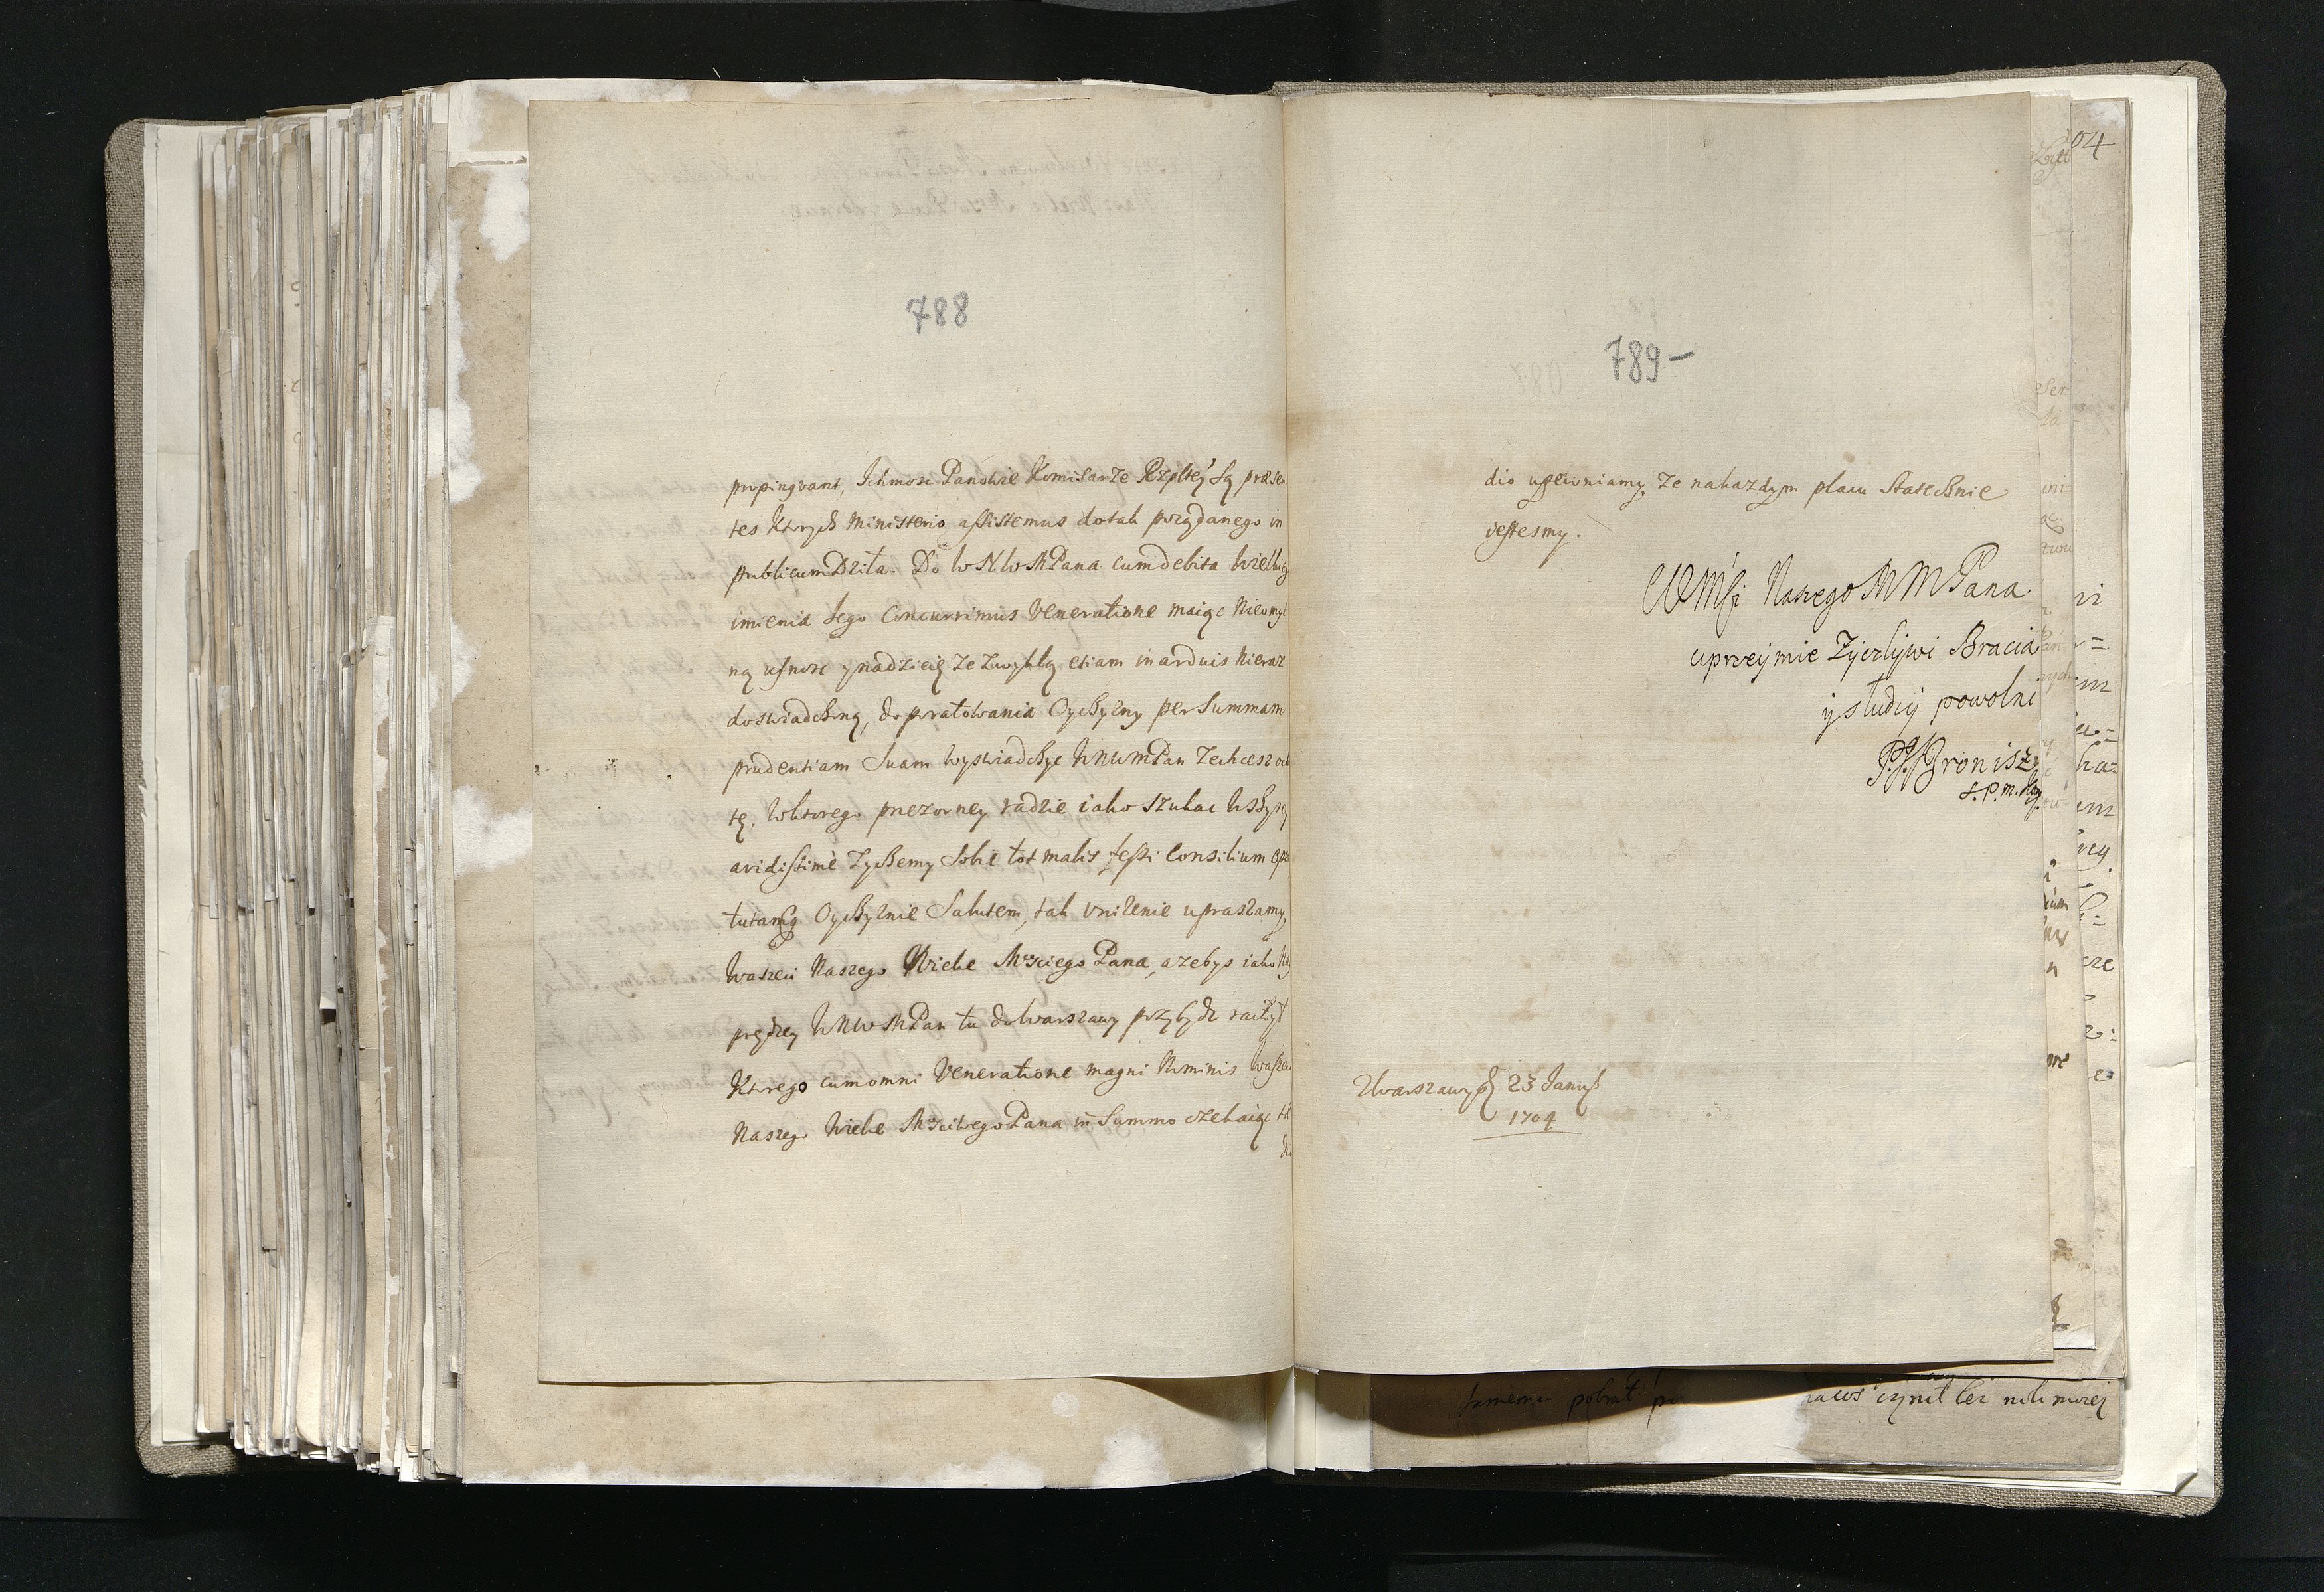 788
propinqvant, Ichmosc Panowie Komisarze Rzpltey są præsen
tes Ktorych ministerio assistemus dotak pożądanego in
publicum Dzita. Do WNWMPana cum debita wielkieg
imienia Iego Concurrimus Veneratione maiąc nieomyl
ną ufnosc y nadzieię że zwykłą etiam in arduis nieraz
doswiadcżoną, do poratowania Oycżyzny per Summam
prudentiam Suam wyswiadcżyc WNWMPan zechcesz och
tę. Wktorego przezorney radzie iako szukac wszyscy
avidissimè życżemy Sobie tot malis fessi consilium
tutamq Oycżyznie Salutem, tak unizenie upraszamy,
Waszeci Naszego Wielce Mscisciego Pana, azebys iako Nay
prędzey WNWMPan tu do Warszawy przybydz raczył
Ktorego cum omni Veneratione magni Nominis Wasze
Naszego Wielce Msciwego Pana in Summo czekaiąc
789-
dio upewniamy, że nakazdym placu statecżnie
iestesmy.
WMsci Naszego MMPana.
uprzeymie Życzlywi Bracia
y słudzy powolni
P. Bronisz
Zwarszawy d 23 Januarij
1704
04